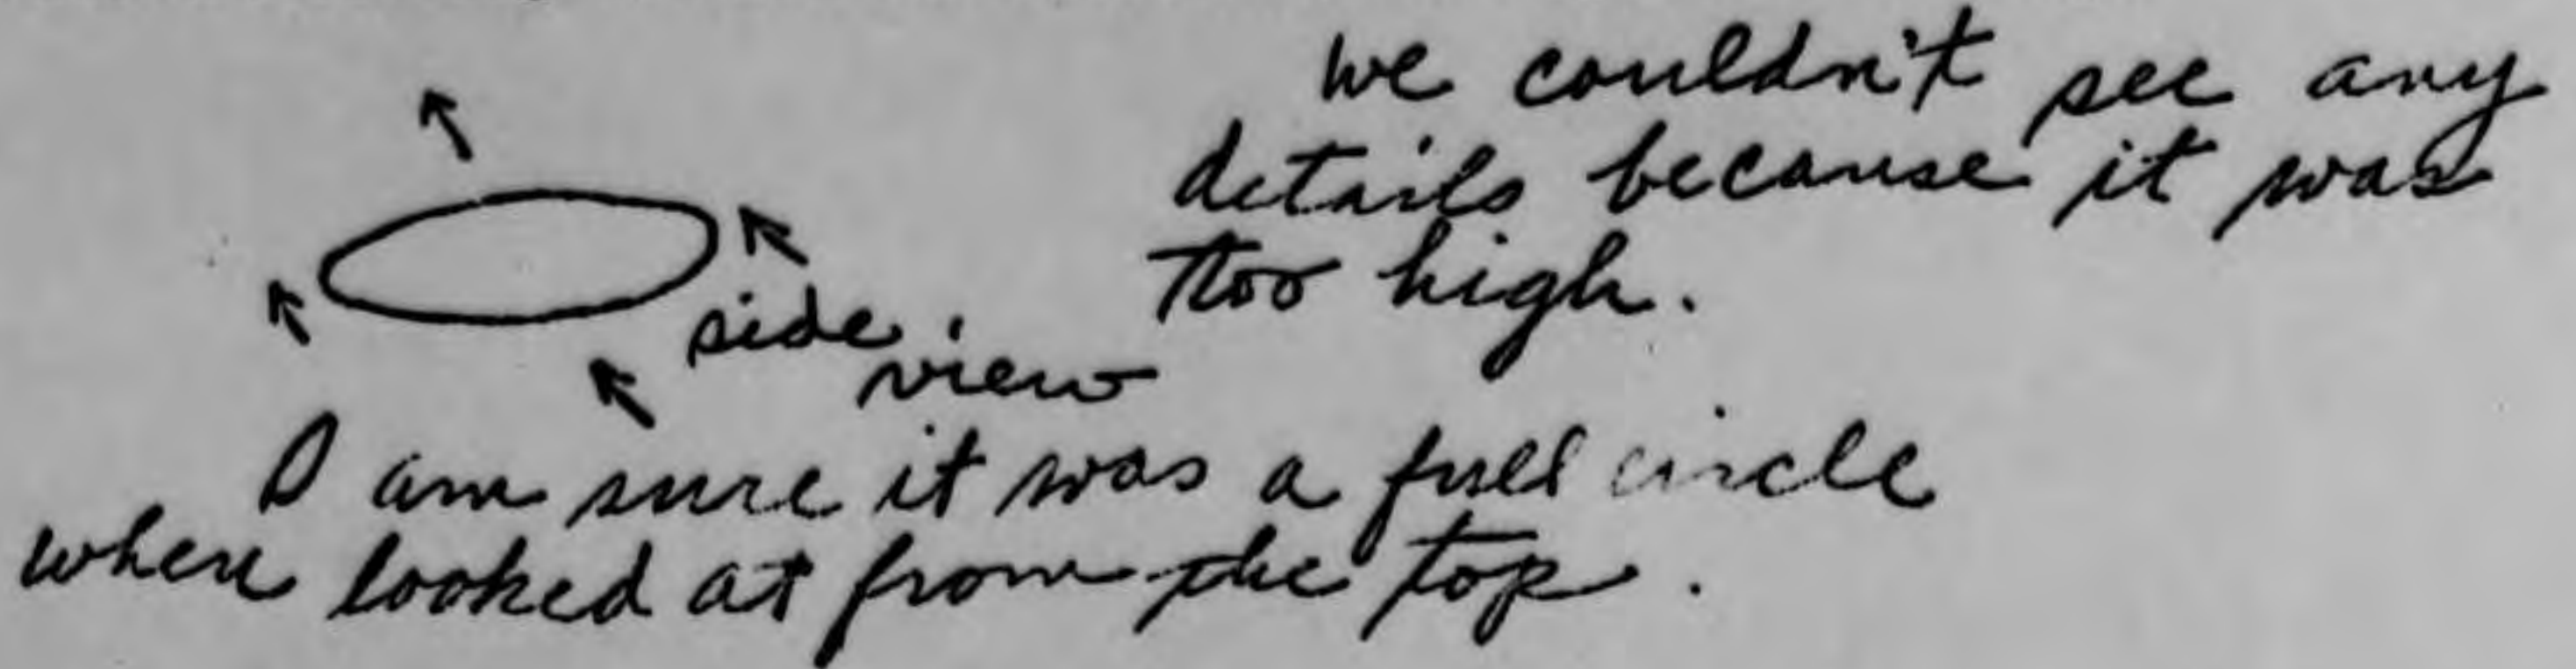 we couldn't see any
details because it was
too high.
side
view
I am sure it was a full circle
when looked at from the top.